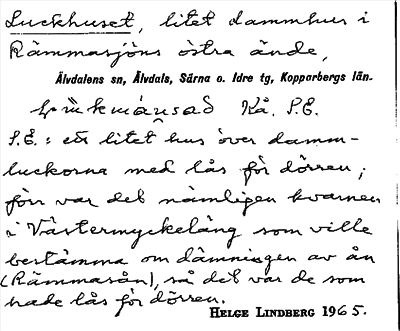 Luckhuset, litet dammhus i
Rämmasjöns östra ände,
Älvdalens sn, Älvdals, Särna o. Idre tg, Kopparbergs län.
Kå. S.E.
S.E.: ett litet hus över damm-
luckorna med lås för dörren;
förr var det nämligen kvarnen
i Västermyckeläng som ville
bestämma om dämningen av ån
(Rämmaån), så det var de som
hade lås för dörren.
HELGE LINDBERG 1965.